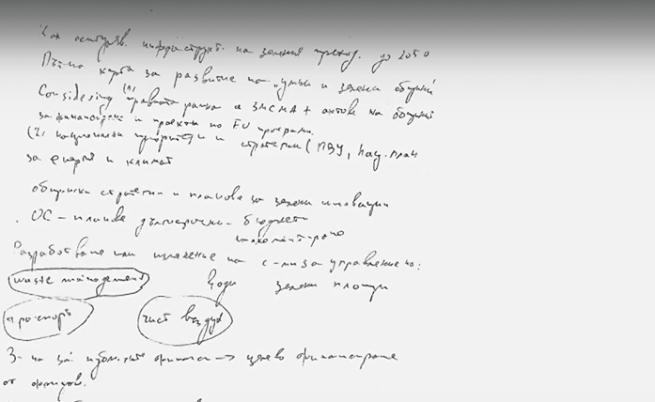 инфраструкт. на зеления преход до 2050
Пътна карта за развитие на умни и зелени общини
Considering (1) правната рамка в ЗМСМА + актове на общини
за финансиране и проекти по EU програми.
(2) национални приоритети и стратегии (ПВУ, Нац. план
за енерг. и климат
общински стратегии и планове за зелени иновации
ОС – планове дългосрочни бюджет
Разработване или на с-ми за управление на:
waste management води зелени площи
транспорт чист въздух
З-на за публичните финанси → целево финансиране
от фондов.